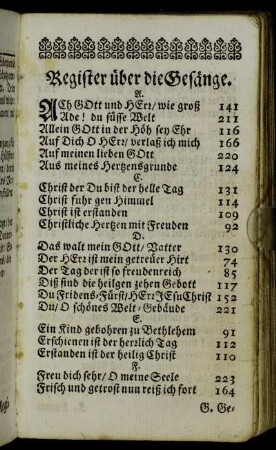 Register über die Gesänge.
A.
ACh GOtt und HErr/ wie groß 141
Alde! du süsse Welt 211
Allein GOtt in der Höh sey Ehr 116
Auf Dich O HErr/ verlaß ich mich 166
Auf meinen lieben GOtt 220
Aus meines Hertzensgrunde 124
C.
Christ der Du bist der helle Tag 131
Christ fuhr gen Himmel 114
Christ ist erstanden 109
Christliche Hertzen mit Freuden 92
D.
Das walt mein GOtt/ Vatter 130
Der HErr ist mein getreuer Hirt 74
Der Tag der ist so freudenreich 85
Diß sind die heilgen zehen Gebott 117
Du Fridens-Fürst/ HErr JEsu Christ 152
Du/ O schönes Welt-Gebäude 221
E.
Ein Kind gebohren zu Bethlehem 91
Erschienen ist der herrlich Tag 112
Erstanden ist der heilig Christ 110
F.
Freu dich sehr/ O meine Seele 223
Frisch und getrost nun reiß ich fort 164
G. Ge-